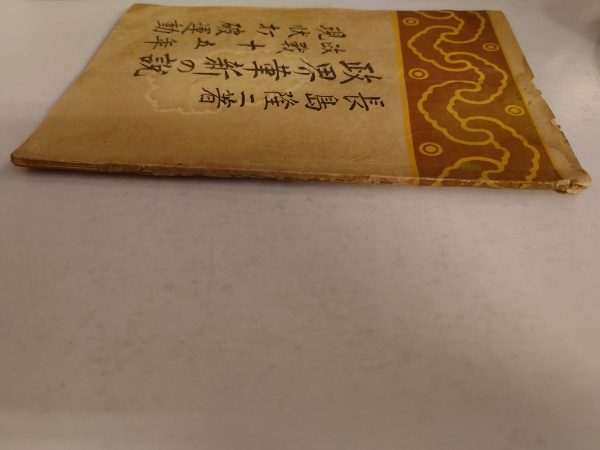 長島隆二著
政界革新の説
政戰十五年
現状打破運動